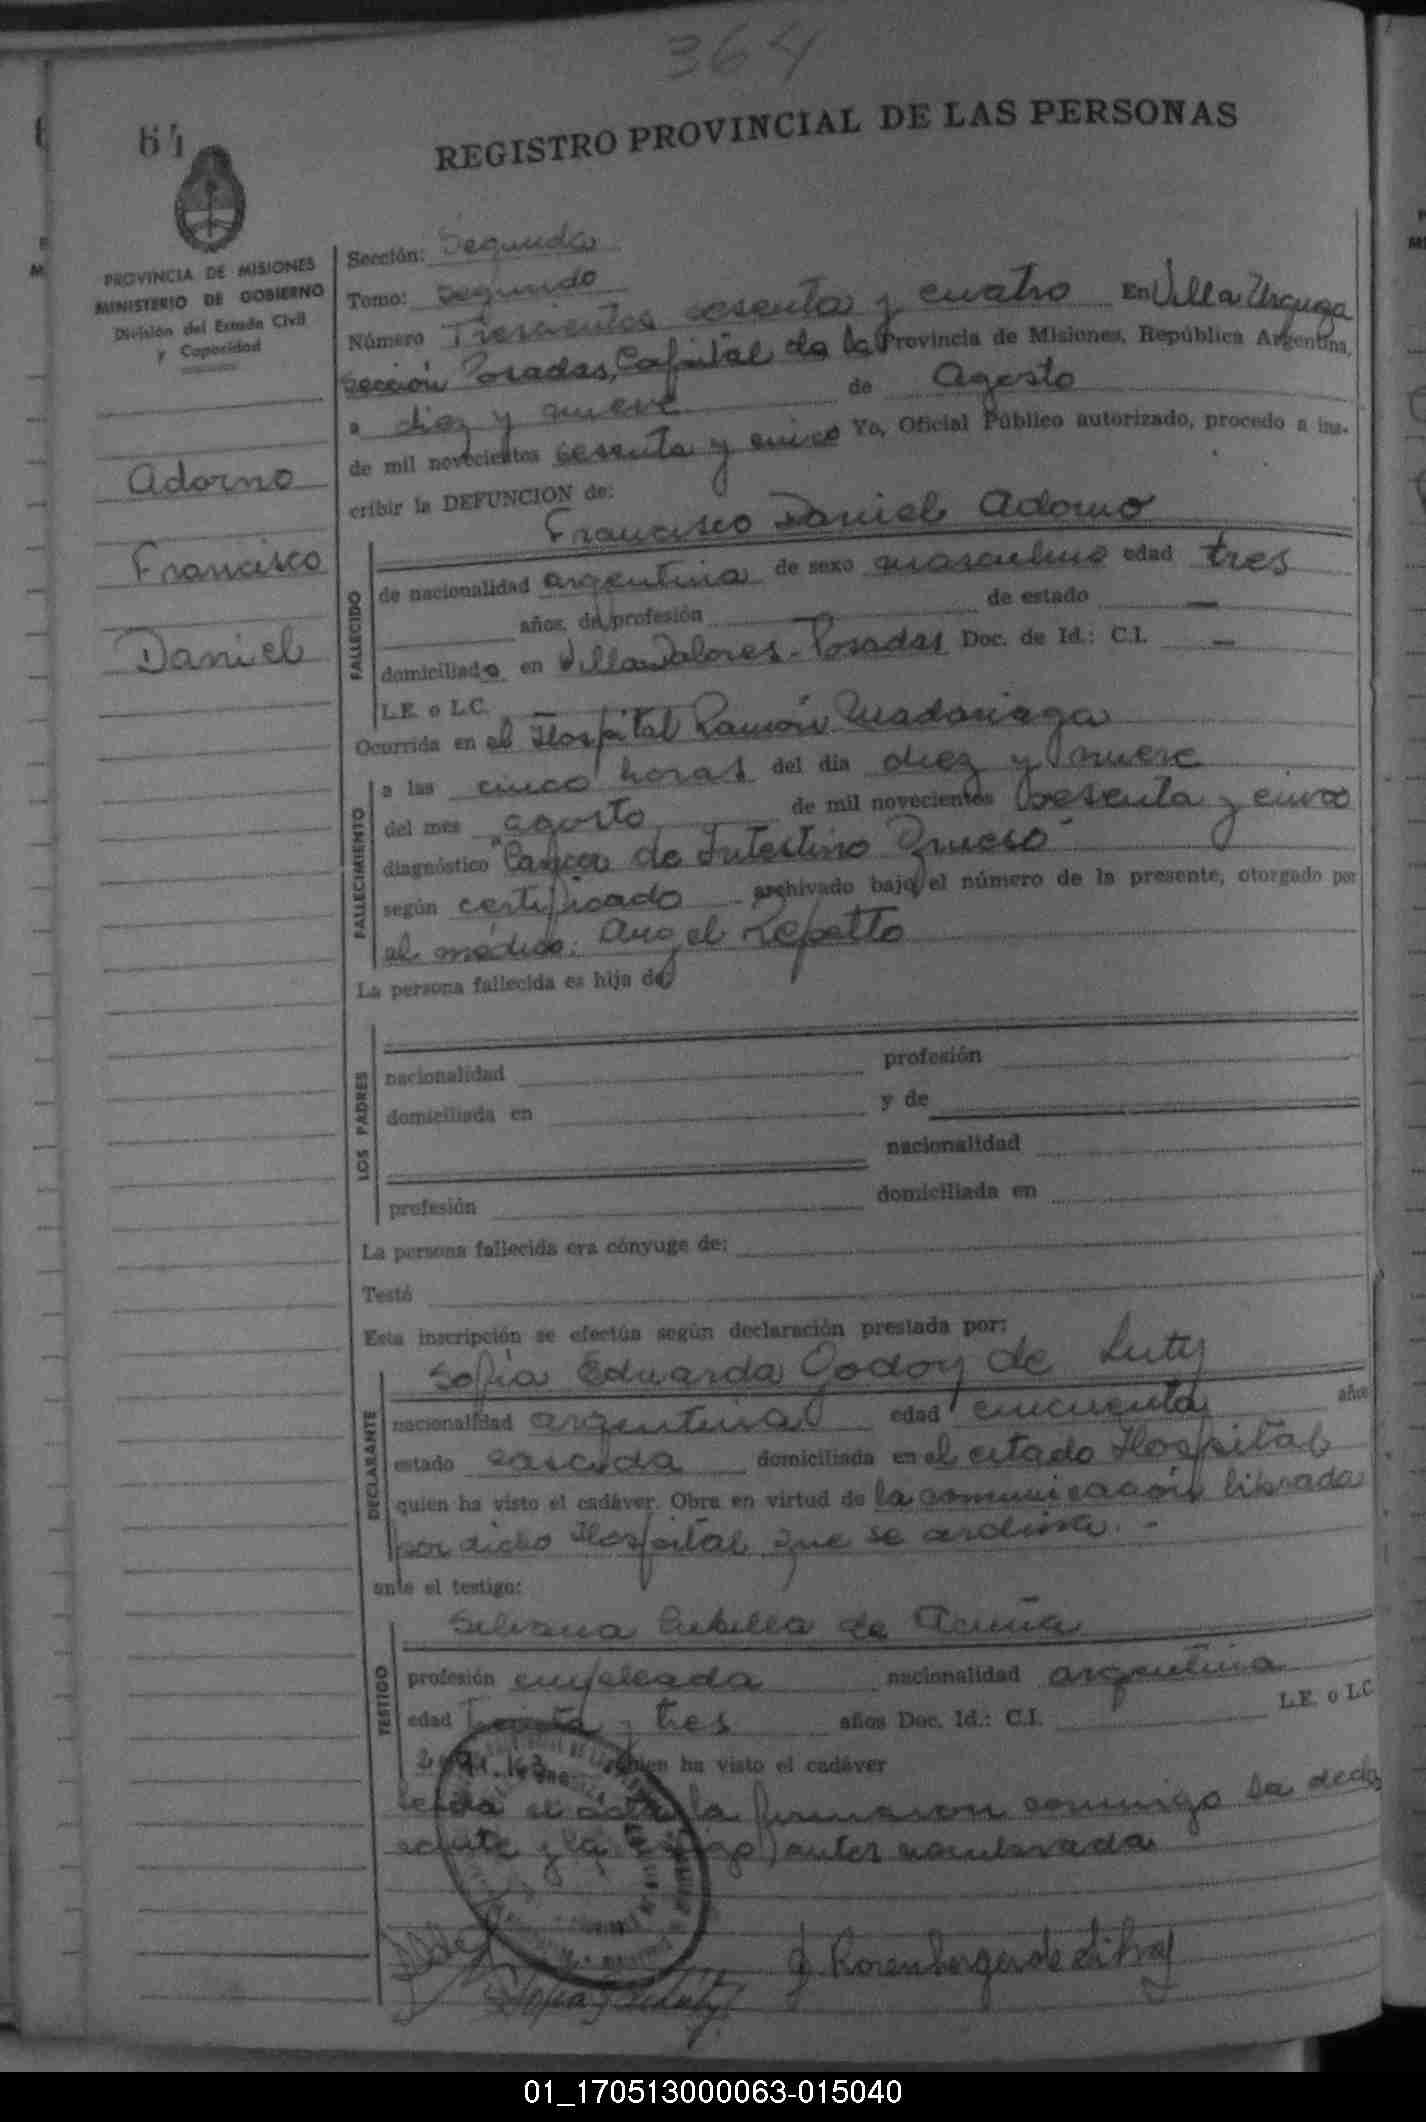 364
64
REGISTRO PROVINCIAL DE LAS PERSONAS
PROVINCIA DE MISIONES
MINISTERIO DE GOBIERNO
División del Estado Civil
y Capacidad
Adorno
Francisco
Daniel
Sección: Segunda
Tomo: Segundo
Número Trescientos sesenta y cuatro En Villa Urquiza
Sección Posadas, Capital de la Provincia de Misiones, República Argentina,
a diez y nueve de Agosto
de mil novecientos sesenta y cinco Yo, Oficial Público autorizado, procedo a ins-
cribir la DEFUNCION de:
Francisco Daniel Adorno
FALLECIDO
de nacionalidad argentina de sexo masculino edad tres
años, de profesión de estado —
domiciliado en Villa Dolores - Posadas Doc. de Id.: C.I. —
L.E. o L.C.
Ocurrida en el Hospital Ramón Madariaga
FALLECIMIENTO
a las cinco horas del día diez y nueve
del mes agosto de mil novecientos sesenta y cinco
diagnóstico "Cancer de Intestino Grueso"
según certificado archivado bajo el número de la presente, otorgado por
el médico: Angel Repetto
La persona fallecida es hija de
LOS PADRES
nacionalidad profesión
domiciliada en y de
nacionalidad
profesión domiciliada en
La persona fallecida era cónyuge de:
Testó
Esta inscripción se efectúa según declaración prestada por:
Sofía Eduarda Godoy de Luty
DECLARANTE
nacionalidad argentina edad cincuenta años
estado casada domiciliada en el citado Hospital
quien ha visto el cadáver. Obra en virtud de la comunicación librada
por dicho Hospital que se archiva. -
ante el testigo:
Silvana Cubilla de Acuña
TESTIGO
profesión empleada nacionalidad argentina
edad treinta y tres años Doc. Id.: C.I. L.E. o L.C
quien ha visto el cadáver
Leída el acta la firmaron conmigo la decla
rante y la testigo antes nombrada
01_170513000063-015040